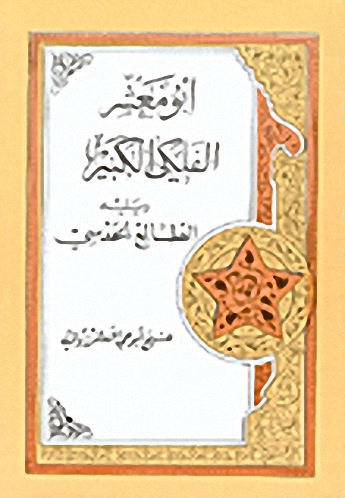 ابو معشر
الفلكي الكبير
ويليه
الطالع الحدسي